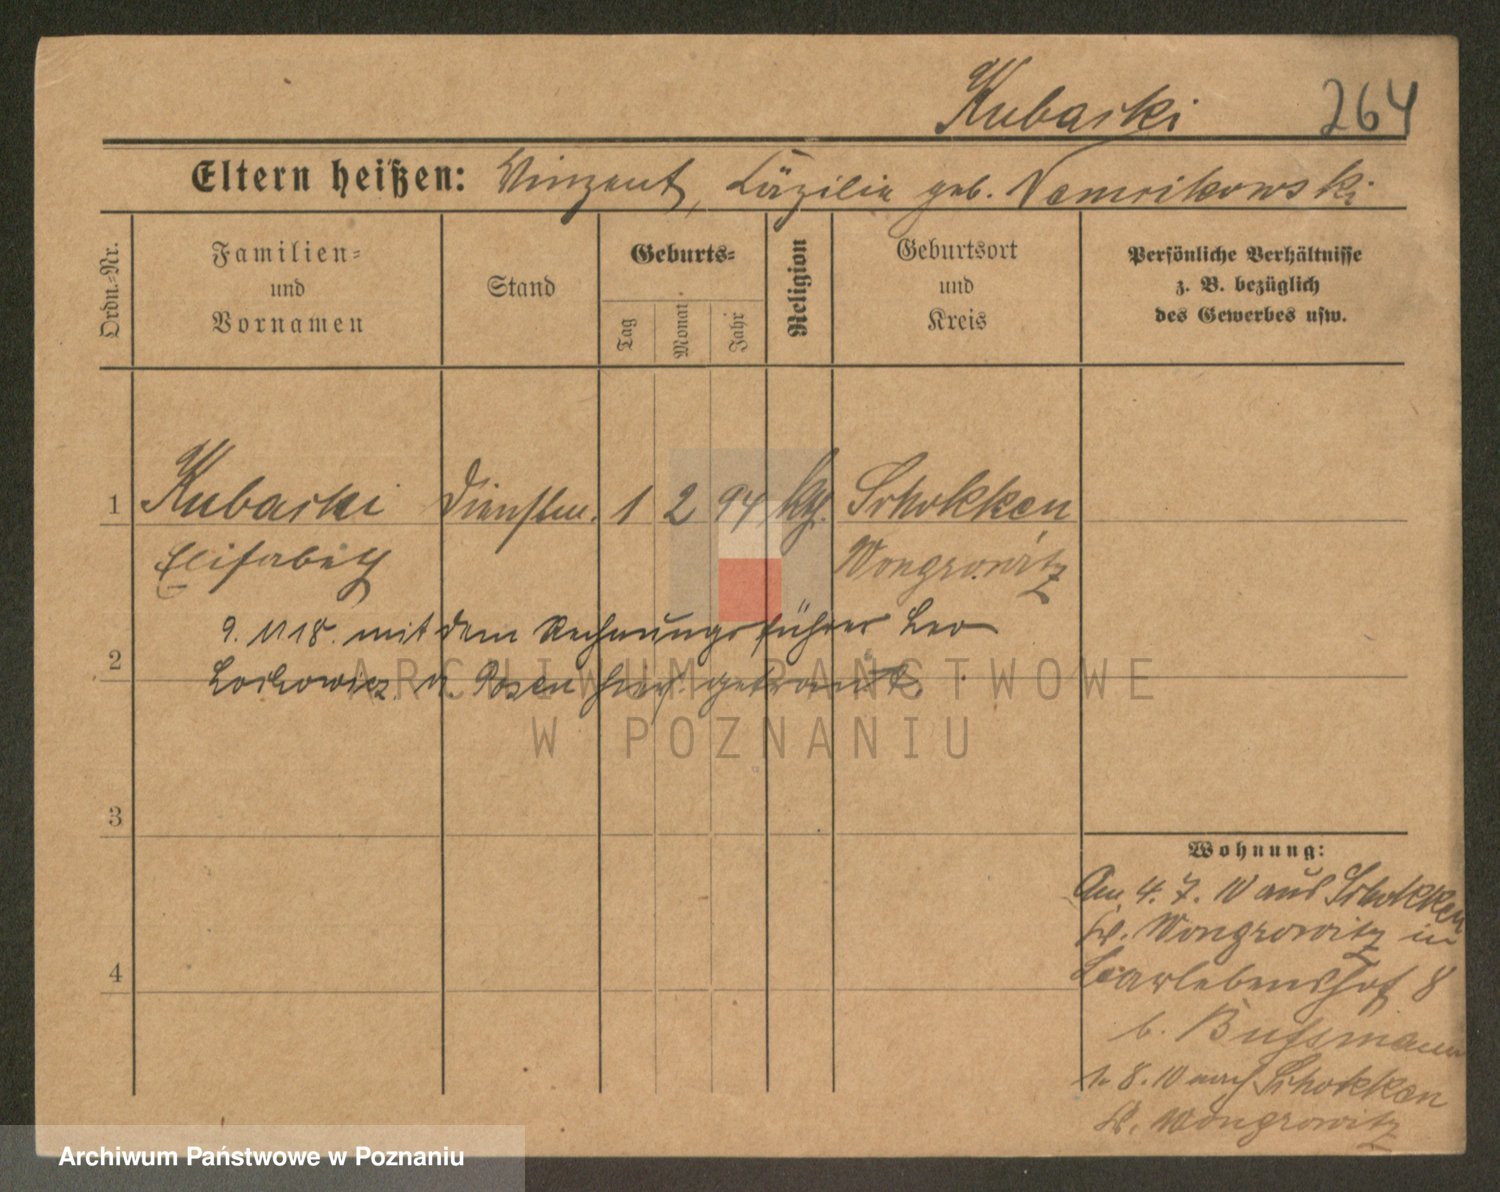 Kubaski 264
Eltern heißen: Vinzent, Cäzilie geb. Namrikowski
Ordn.-Nr.
Familien-
und
Vornamen
Stand
Geburts-
Tag
Monat
Jahr
Religion
Geburtsort
und
Kreis
Persönliche Verhältnisse
z. B. bezüglich
des Gewerbes usw.
1 Kubaski Dienstm. 1 2 94 kth. Schokken
Elisabeth Wongrowitz
9. 11 18. mit dem Rechnungsführer Leo
2 in Posen hier getraut.
ARCHIWUM PAŃSTWOWE
W POZNANIU
3
Wohnung:
Am 4. 7. 10 aus Schokken
Kr. Wongrowitz in
4
8
b. Bussmann
1. 8. 10 nach Schokken
Kr. Wongrowitz
Archiwum Państwowe w Poznaniu